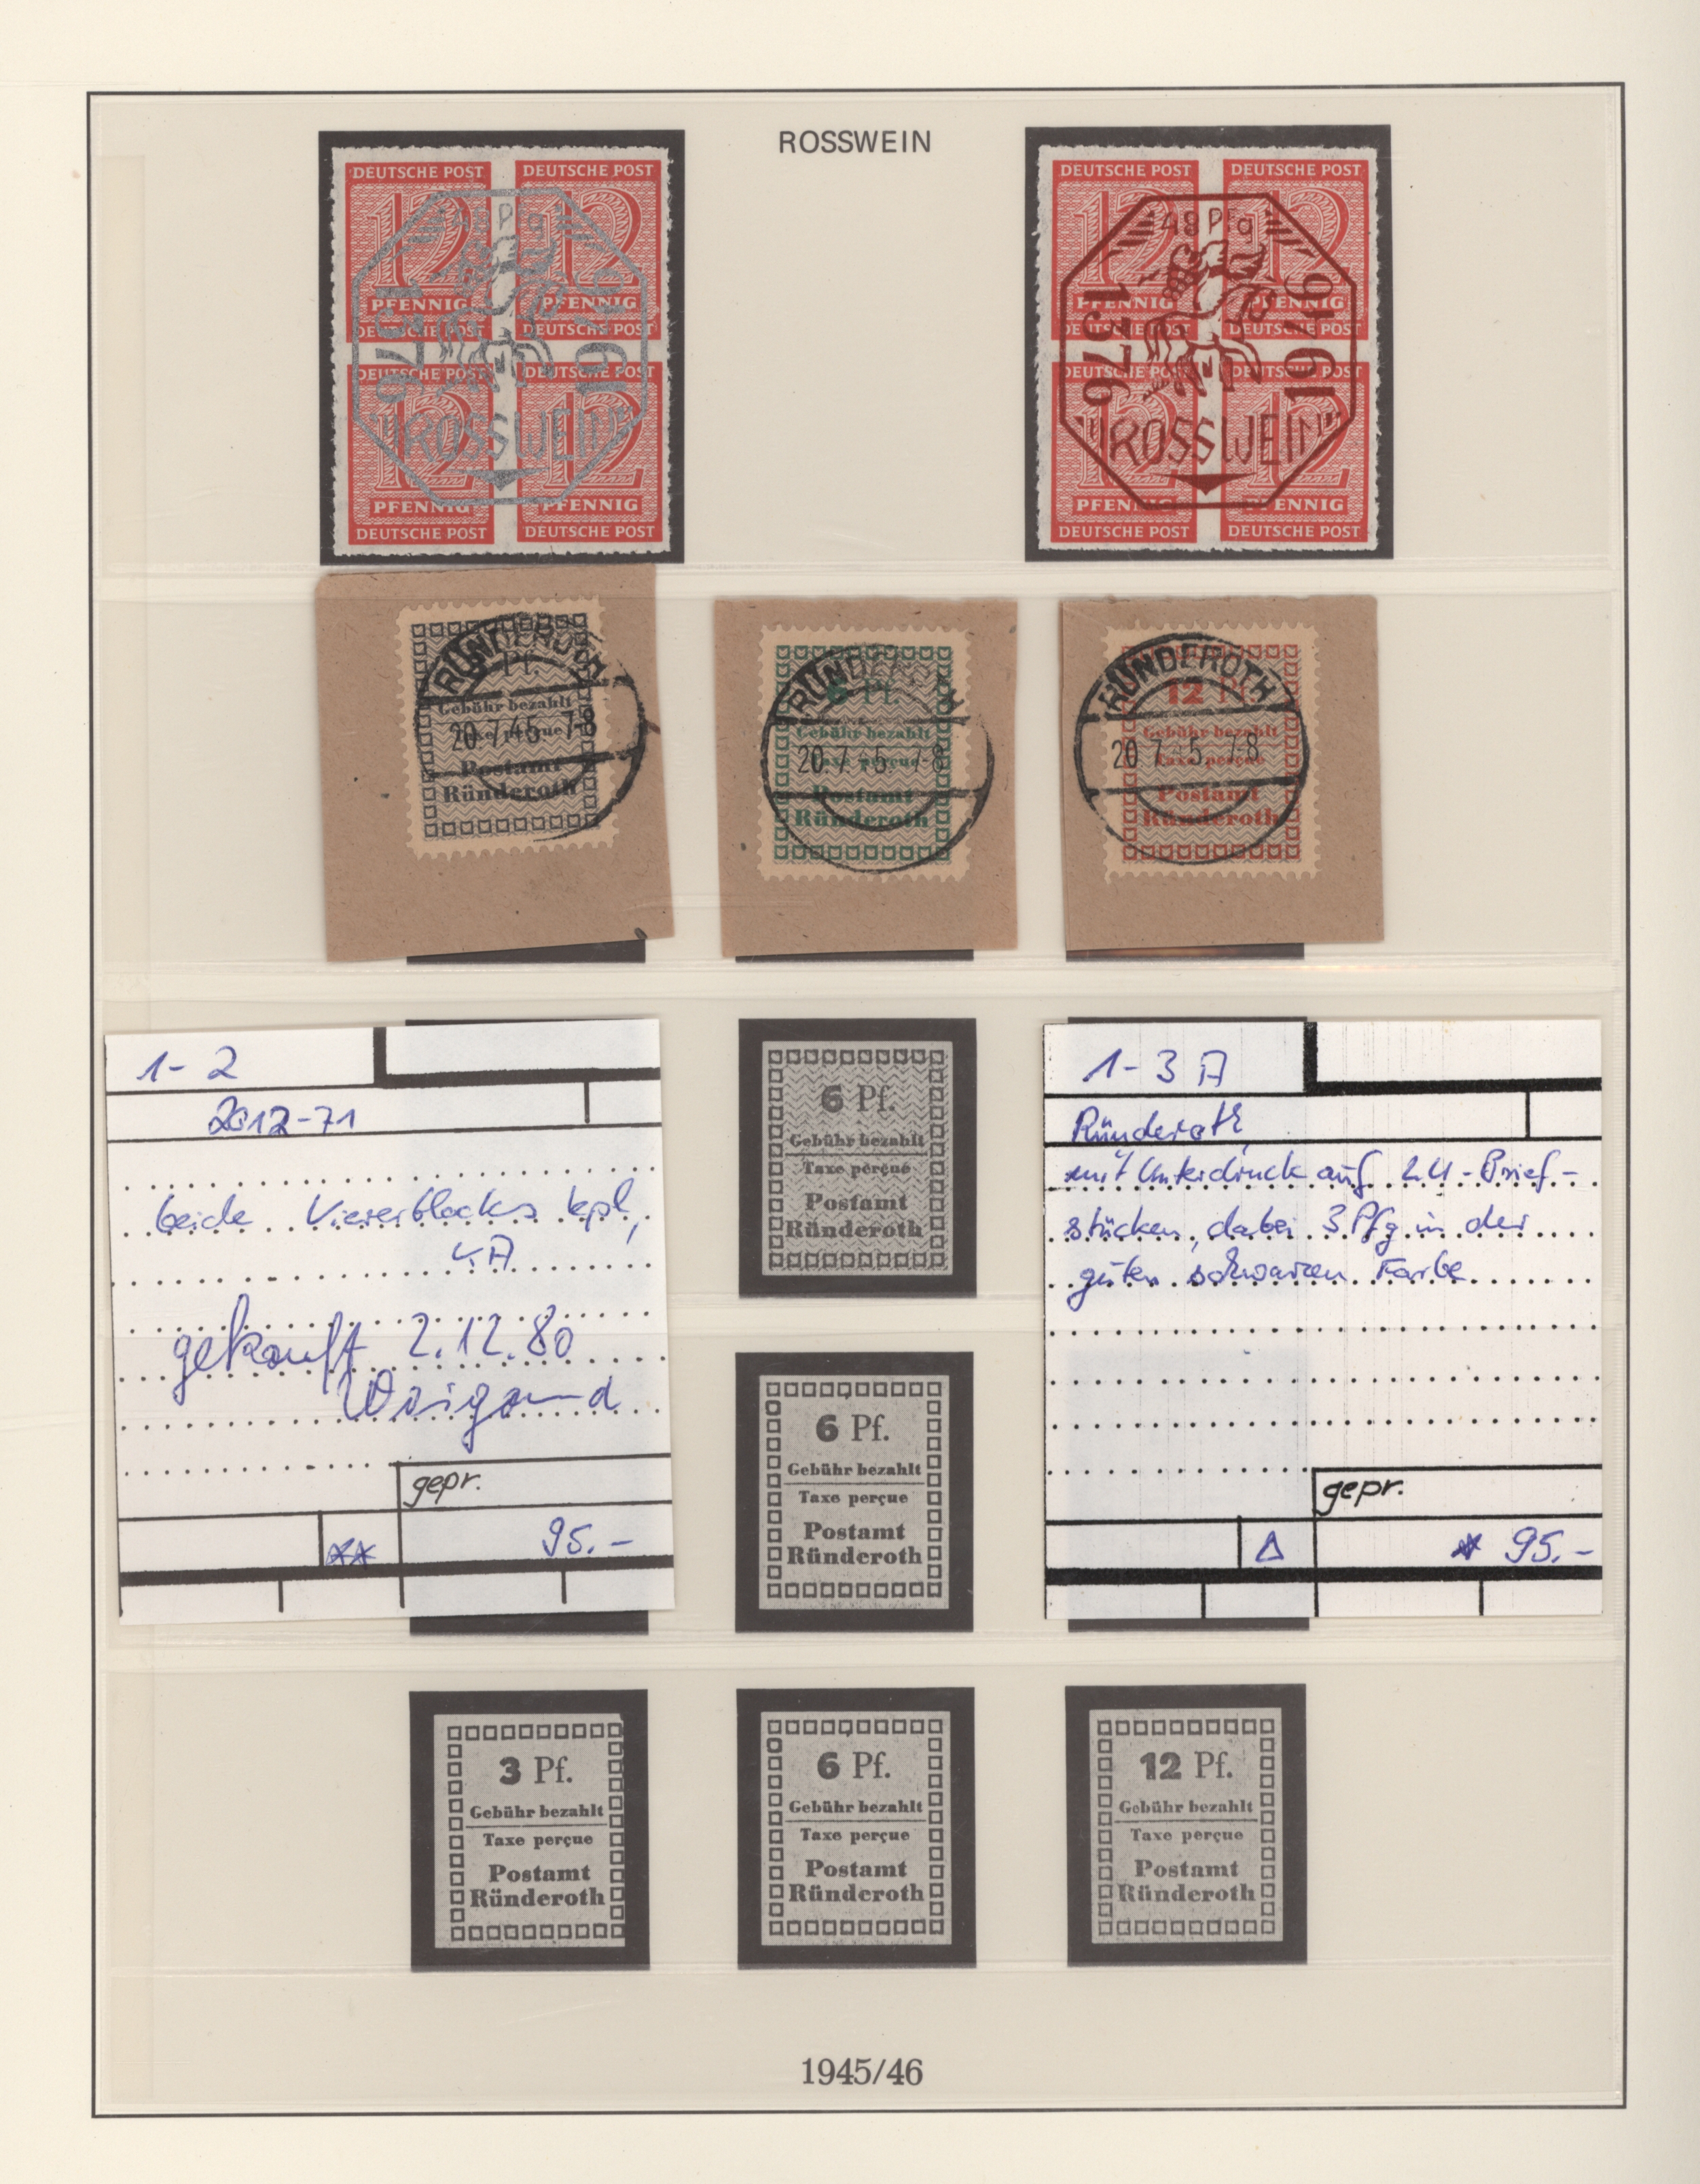 ROSSWEIN
DEUTSCHE POST DEUTSCHE POST
12 12
48 Pfg
PFENNIG PFENNIG
DEUTSCHE POST DEUTSCHE POST
1376 1946
DEUTSCHE POST DEUTSCHE POST
12 12
"ROSSWEIN"
PFENNIG PFENNIG
DEUTSCHE POST DEUTSCHE POST
DEUTSCHE POST DEUTSCHE POST
12 12
48 Pfg
PFENNIG PFENNIG
DEUTSCHE POST DEUTSCHE POST
1376 1946
DEUTSCHE POST DEUTSCHE POST
12 12
"ROSSWEIN"
PFENNIG PFENNIG
DEUTSCHE POST DEUTSCHE POST
RÜNDEROTH
Pf.
Gebühr bezahlt
Taxe perçue
20.7.45 7-8
Postamt
Ründeroth
RÜNDEROTH
6 Pf.
Gebühr bezahlt
Taxe perçue
20.7.45 7-8
Postamt
Ründeroth
RÜNDEROTH
12 Pf.
Gebühr bezahlt
Taxe perçue
20.7.45 7-8
Postamt
Ründeroth
1-2
2012-71
beide Viererblocks kpl,
4A
gekauft 2.12.80
Weigand
gepr.
** 95.-
6 Pf.
Gebühr bezahlt
Taxe perçue
Postamt
Ründeroth
6 Pf.
Gebühr bezahlt
Taxe perçue
Postamt
Ründeroth
1-3 A
Ründeroth,
mit Unterdruck auf LU-Brief-
stücken, dabei 3 Pfg in der
guten schwarzen Farbe
gepr.
Δ 95.-
3 Pf.
Gebühr bezahlt
Taxe perçue
Postamt
Ründeroth
6 Pf.
Gebühr bezahlt
Taxe perçue
Postamt
Ründeroth
12 Pf.
Gebühr bezahlt
Taxe perçue
Postamt
Ründeroth
1945/46